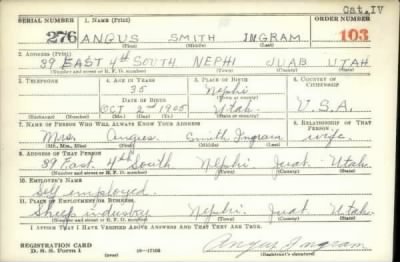 Cat. IV
SERIAL NUMBER 1. NAME (Print) ORDER NUMBER
276 ANGUS SMITH INGRAM 103
(First) (Middle) (Last)
2. ADDRESS (Print)
39 EAST 4th SOUTH NEPHI JUAB UTAH
(Number and street or R. F. D. number) (Town) (County) (State)
3. TELEPHONE 4. AGE IN YEARS 5. PLACE OF BIRTH 6. COUNTRY OF CITIZENSHIP
35 Nephi
DATE OF BIRTH (Town or county)
OCT 2nd 1905 Utah. U.S.A.
(Exchange) (Number) (Mo.) (Day) (Yr.) (State or country)
7. NAME OF PERSON WHO WILL ALWAYS KNOW YOUR ADDRESS 8. RELATIONSHIP OF THAT PERSON
Mrs. Angus Smith Ingram wife
(Mr., Mrs., Miss) (First) (Middle) (Last)
9. ADDRESS OF THAT PERSON
39 East 4th South Nephi Juab Utah.
(Number and street or R. F. D. number) (Town) (County) (State)
10. EMPLOYER'S NAME
Self employed
11. PLACE OF EMPLOYMENT OR BUSINESS
Sheep industry Nephi. Juab Utah.
(Number and street or R. F. D. number) (Town) (County) (State)
I AFFIRM THAT I HAVE VERIFIED ABOVE ANSWERS AND THAT THEY ARE TRUE.
REGISTRATION CARD
D. S. S. Form 1 (over) 16—17105 Angus S Ingram
(Registrant's signature)